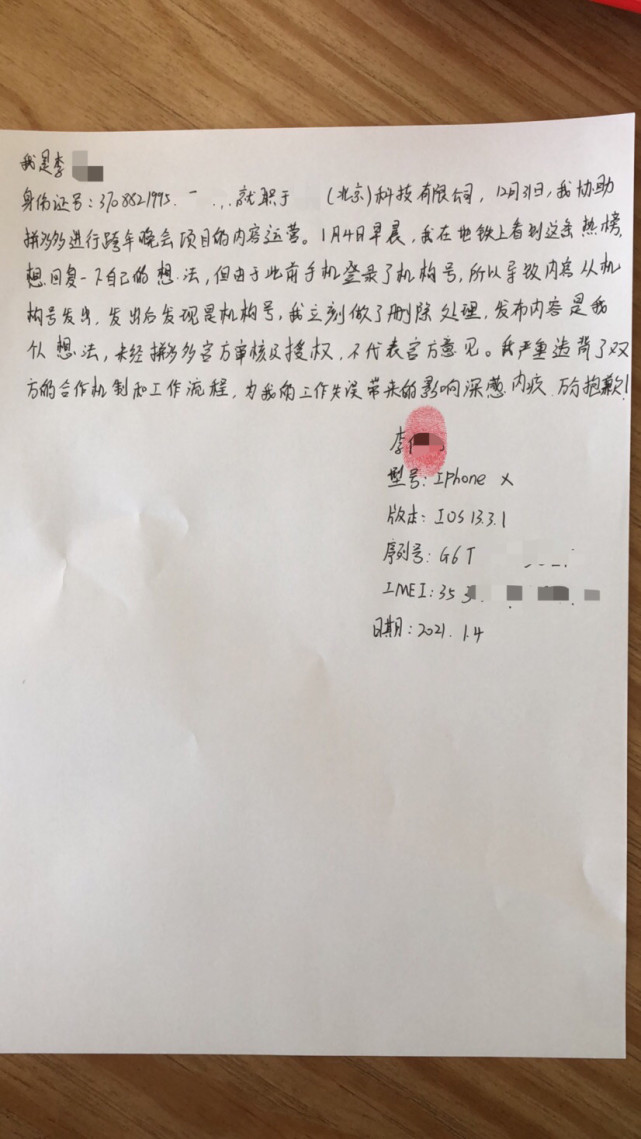 我是李
身份证号：3708821995. 就职于 (北京)科技有限公司，12月31日，我协助
拼多多进行跨年晚会项目的内容运营。1月4日早晨，我在地铁上看到这条热榜，
想回复一下自己的想法，但由于此前手机登录了机构号，所以导致内容从机
构号发出，发出后发现是机构号，我立刻做了删除处理，发布内容是我
个人想法，未经拼多多官方审核及授权，不代表官方意见。我严重违背了双
方的合作机制和工作流程，为我的工作失误带来的影响深感内疚，万分抱歉！
李
型号：Iphone X
版本：IOS 13.3.1
序列号：G6T
IMEI：35
日期：2021.1.4